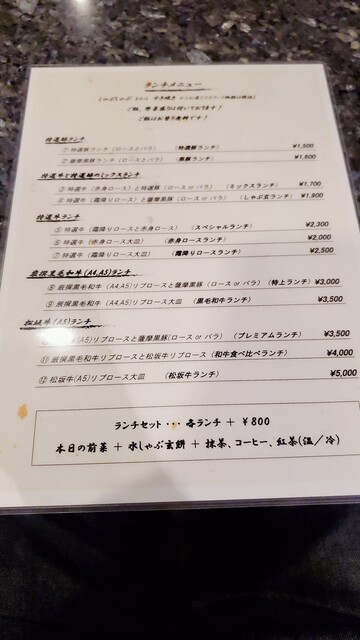 ランチメニュー
しゃぶしゃぶ または すき焼き
ご飯、野菜盛りは付いております!
ご飯はお替り無料です!
特選豚ランチ
①特選豚ランチ(ロースとバラ) (特選豚ランチ) ¥1,500
②薩摩黒豚ランチ(ロースとバラ) (黒豚ランチ) ¥1,600
特選牛と特選豚のミックスランチ
③特選牛(赤身ロース)と特選豚(ロースorバラ) (ミックスランチ) ¥1,700
④特選牛(霜降りロース)と薩摩黒豚(ロースorバラ) (しゃぶ玄ランチ) ¥1,900
特選牛ランチ
⑤特選牛(霜降りロースと赤身ロース) (スペシャルランチ) ¥2,300
⑥特選牛(赤身ロース大皿) (赤身ロースランチ) ¥2,000
⑦特選牛(霜降りロース大皿) (霜降りロースランチ) ¥2,500
厳撰黒毛和牛(A4,A5)ランチ
⑧厳撰黒毛和牛(A4,A5)リブロースと薩摩黒豚(ロースorバラ) (特上ランチ) ¥3,000
⑨厳撰黒毛和牛(A4,A5)リブロース大皿 (黒毛和牛ランチ) ¥3,500
松坂牛(A5)ランチ
(A5)リブロースと薩摩黒豚(ロースorバラ) (プレミアムランチ) ¥3,500
⑪厳撰黒毛和牛リブロースと松坂牛リブロース (和牛食べ比べランチ) ¥4,000
⑫松坂牛(A5)リブロース大皿 (松坂牛ランチ) ¥5,000
ランチセット・・・各ランチ + ¥800
本日の前菜 + 水しゃぶ玄餅 + 抹茶、コーヒー、紅茶(温/冷)